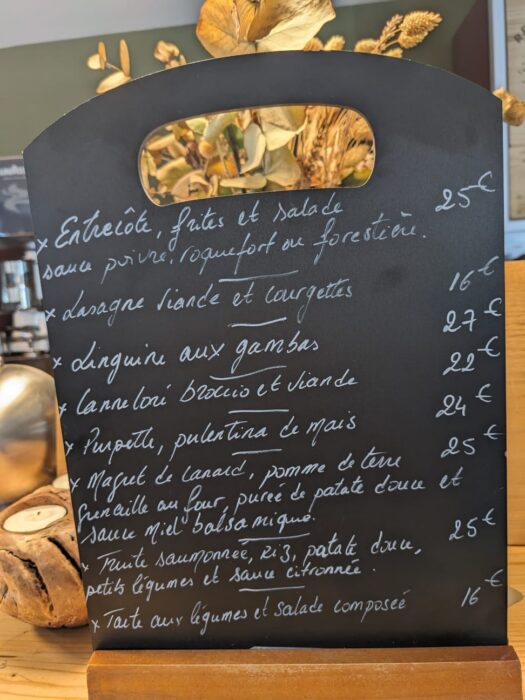 x Entrecôte, frites et salade 25€
sauce poivre, roquefort ou forestière.
x Lasagne viande et courgettes 16€
x Linguine aux gambas 27€
x Canneloni brocciu et viande 22€
x Purpette, pulentina de maïs 24€
x Magret de Canard, pomme de terre 25€
grenaille au four, purée de patate douce et
sauce miel balsamique.
x Truite saumonnée, riz, patate douce, 25€
petits légumes et sauce citronnée.
x Tarte aux légumes et salade composée 16€